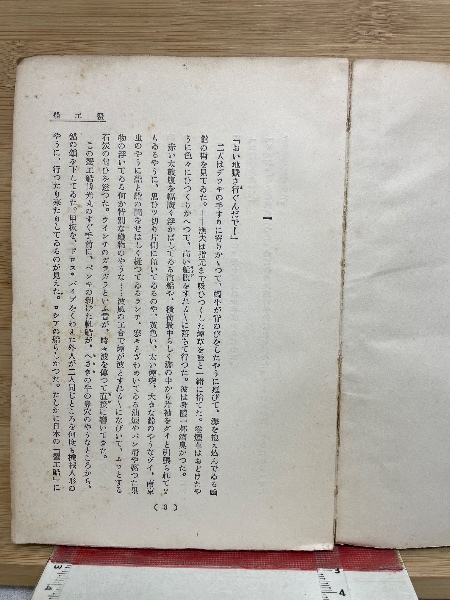 船工蟹
一
「おい地獄さ行ぐんだで！」
二人はデッキの手すりに寄りかかつて、蝸牛が背のびをしたやうに延びて、海を抱え込んでゐる函
館の街を見てゐた。――漁夫は指元まで吸ひつくした煙草を唾と一緒に捨てた。巻煙草はおどけたや
うに色々にひつくりかへつて、高い船腹をすれずれに落ちて行つた。彼は身體一杯酒臭かつた。
赤い太鼓腹を幅廣く浮かばしてゐる汽船や、積荷最中らしく海の中から片袖をグイと引張られてゞ
もゐるやうに、思ひツ切り片側に傾いてゐるのや、黄色い、太い煙突、大きな鈴のやうなヴイ、南京
虫のやうに船と船の間をせはしく縫つてゐるランチ、寒々とざわめいてゐる油煙やパン屑や腐つた果
物の浮いてゐる何か特別な織物のやうな波……。風の工合で煙が波とすれずれになびいて、ムツとする
石炭の匂ひを送つた。ウインチのガラガラといふ音が、時々波を傳つて直接に響いてきた。
この蟹工船博光丸のすぐ手前に、ペンキの剝げた帆船が、へさきの牛の鼻穴のやうなところから、
錨の鎖を下してゐた。甲板を、マドロス・パイプをくわえた外人が二人同じところを何度も機械人形の
やうに、行つたり來たりしてゐるのが見えた。ロシアの船らしかつた。たしかに日本の「蟹工船」に
( 3 )
3
4